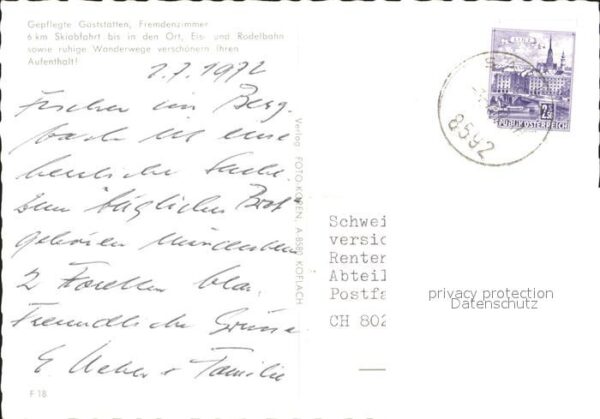 Gepflegte Gaststätten, Fremdenzimmer
6 km Skiabfahrt bis in den Ort, Eis- und Rodelbahn
sowie ruhige Wanderwege verschönern Ihren
Aufenthalt!
1.7.1972
Fischen im Berg-
bach ist eine
herrliche Sache.
Zum täglichen Brot
gehören mindestens
2 Forellen blau.
Freundliche Grüsse
E. Weber + Familie
F 18
Verlag FOTO-KOREN, A-8580 KÖFLACH
8592
LINZ
2.50
REPUBLIK ÖSTERREICH
Schwei
versic
Renten
Abteil
Postfa
CH 802
privacy protection
Datenschutz